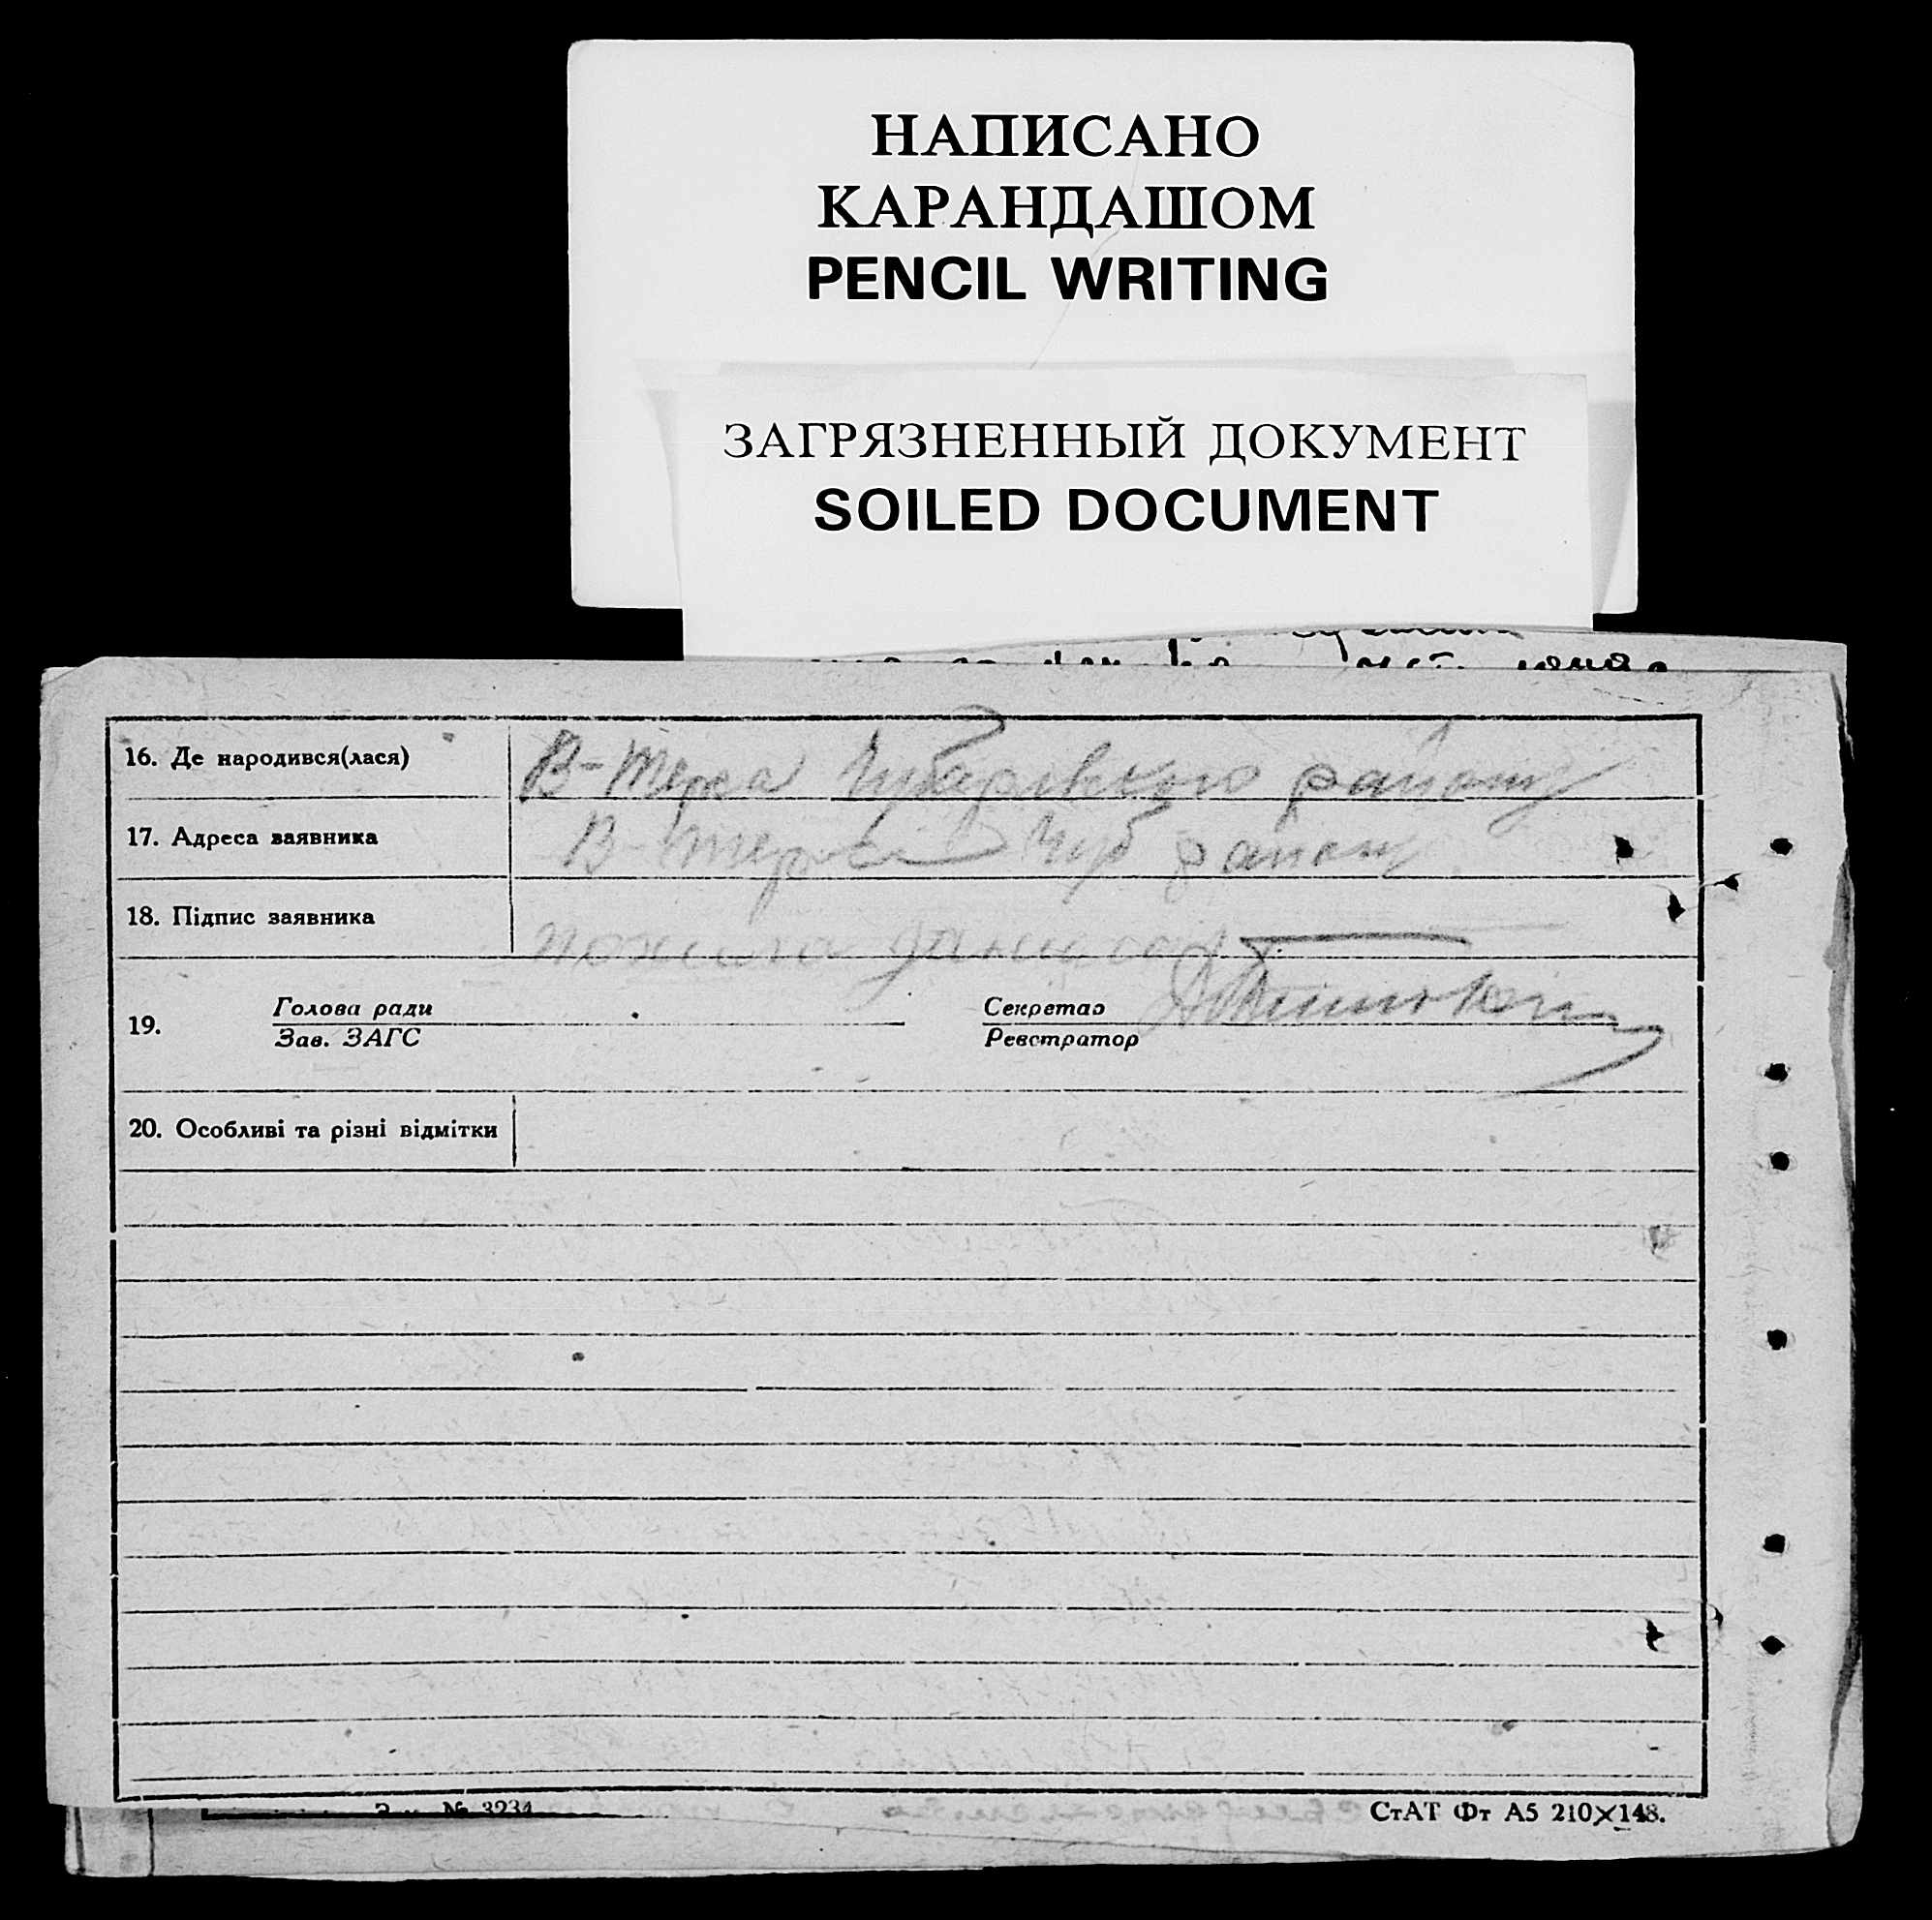 НАПИСАНО
КАРАНДАШОМ
PENCIL WRITING
ЗАГРЯЗНЕННЫЙ ДОКУМЕНТ
SOILED DOCUMENT
16. Де народився(лася) В-Терса Чубарівського району
17. Адреса заявника В-Терса Чуб району
18. Підпис заявника
19. Голова ради Секретар
Зав. ЗАГС Реєстратор
20. Особливі та різні відмітки
№ 3234
СтАТ Фт А5 210×148.